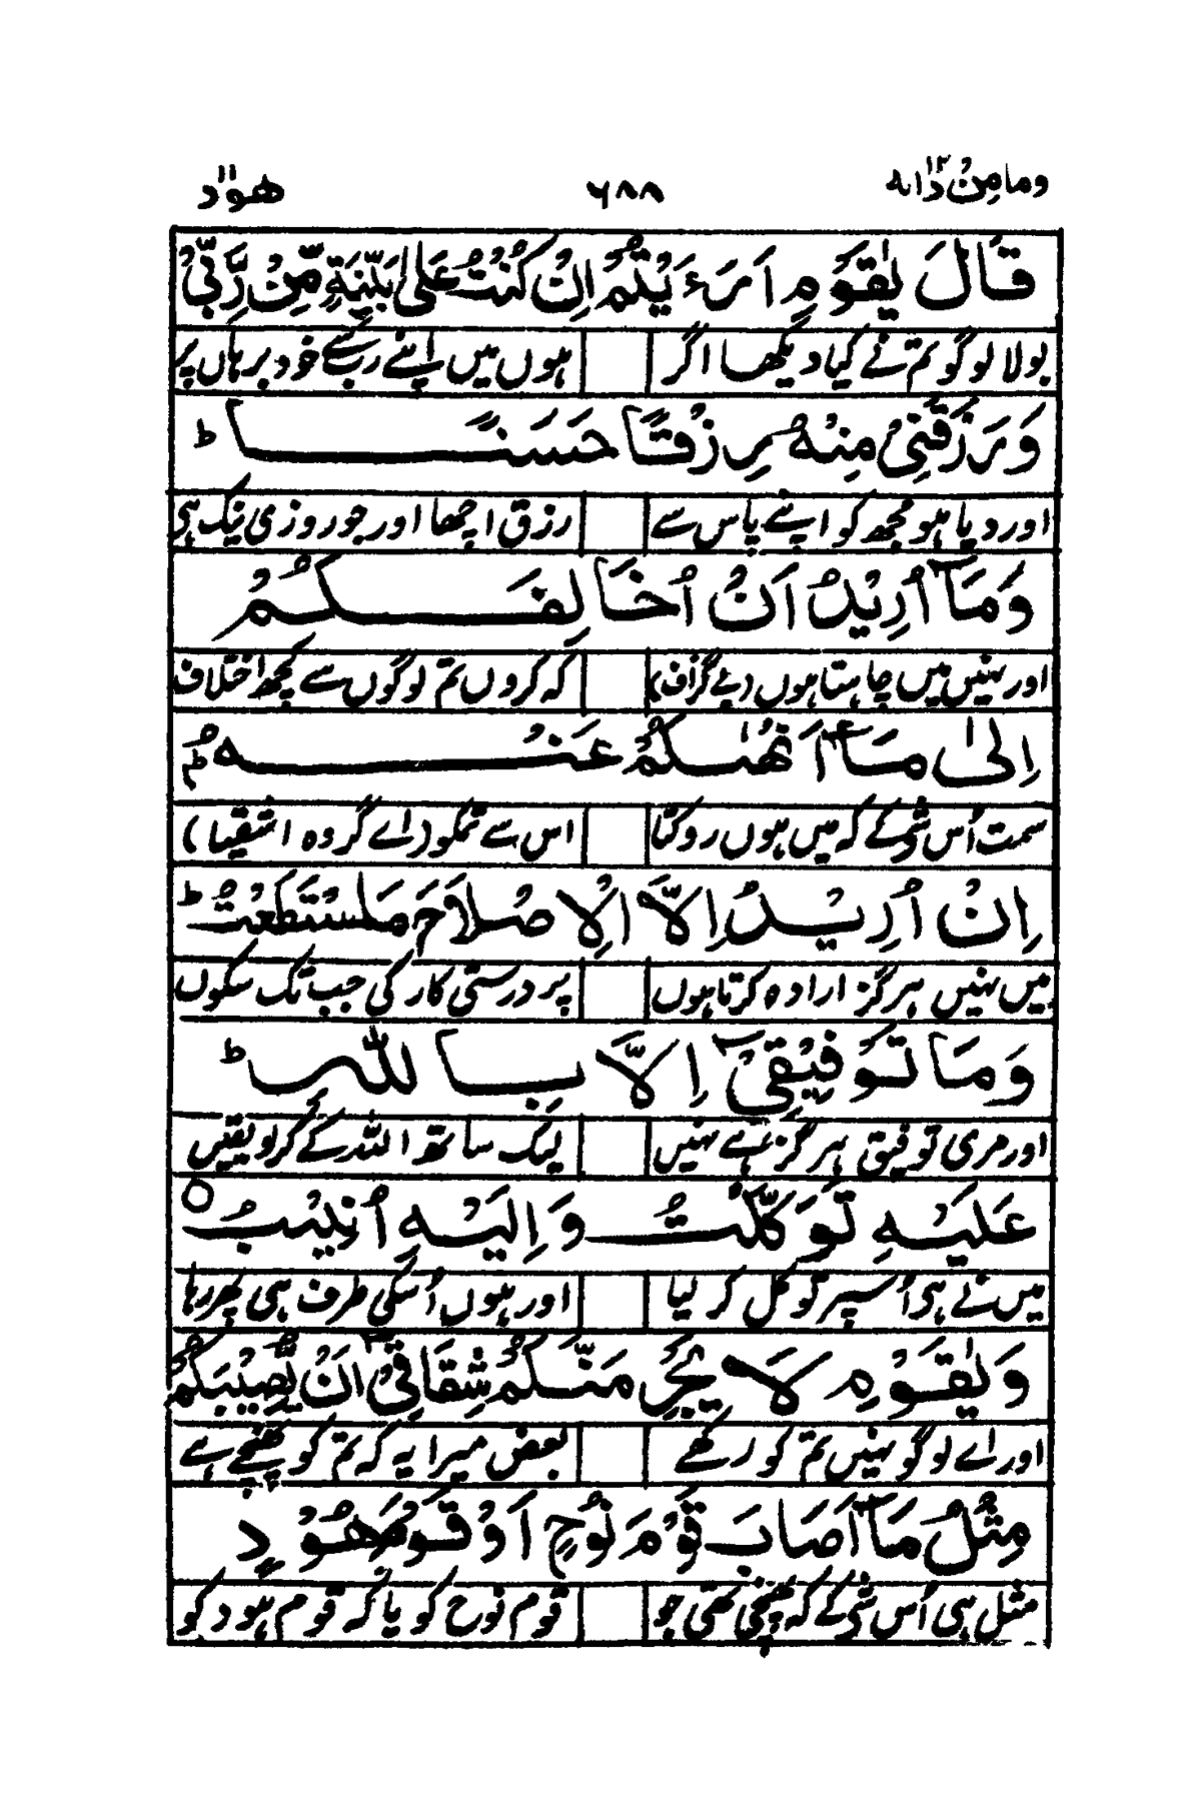 وما من دابه ۱۲ ۶۸۸ هود ۱۱
قَالَ يٰقَوْمِ اَرَءَيْتُمْ اِنْ كُنْتُ عَلٰى بَيِّنَةٍ مِّنْ رَّبِّيْ
بولا لوگو تم نے کیا دیکھا اگر ہوں میں اپنے رب کے خود برہاں پر
وَرَزَقَنِيْ مِنْهُ رِزْقًا حَسَنًا ؕ
اور دیا ہو مجھ کو اپنے پاس سے رزق اچھا اور جو روزی نیک ہی
وَمَآ اُرِيْدُ اَنْ اُخَالِفَكُمْ
اور نہیں میں چاہتا ہوں (بے گزاف) کہ کروں تم لوگوں سے کچھ اختلاف
اِلٰى مَآ اَنْهٰىكُمْ عَنْهُ ؕ
سمت اُس شے کے کہ میں ہوں روکتا اس سے تمکو (اے گروہ اشقیا)
اِنْ اُرِيْدُ اِلَّا الْاِصْلَاحَ مَا اسْتَطَعْتُ ؕ
میں نہیں ہرگز ارادہ کرتا ہوں پر درستی کار کی جب تک سکوں
وَمَا تَوْفِيْقِيْٓ اِلَّا بِاللّٰهِ ؕ
اور مری توفیق ہرگز ہے نہیں لیک ساتھ اللہ کے کر لو یقیں
عَلَيْهِ تَوَكَّلْتُ وَاِلَيْهِ اُنِيْبُ ○
میں نے ہی اُسپر توکل کر لیا اور ہوں اُسکی طرف ہی پھر رہا
وَيٰقَوْمِ لَا يَجْرِمَنَّكُمْ شِقَاقِيْٓ اَنْ يُّصِيْبَكُمْ
اور اے لوگو نہیں تم کو رکھے بعض میرا یہ کہ تم کو پہنچے ہے
مِثْلُ مَآ اَصَابَ قَوْمَ نُوْحٍ اَوْ قَوْمَ هُوْدٍ
مثل ہی اُس شی کے کہ پہنچی تھی جو قوم نوح کو یا کہ قوم ہود کو